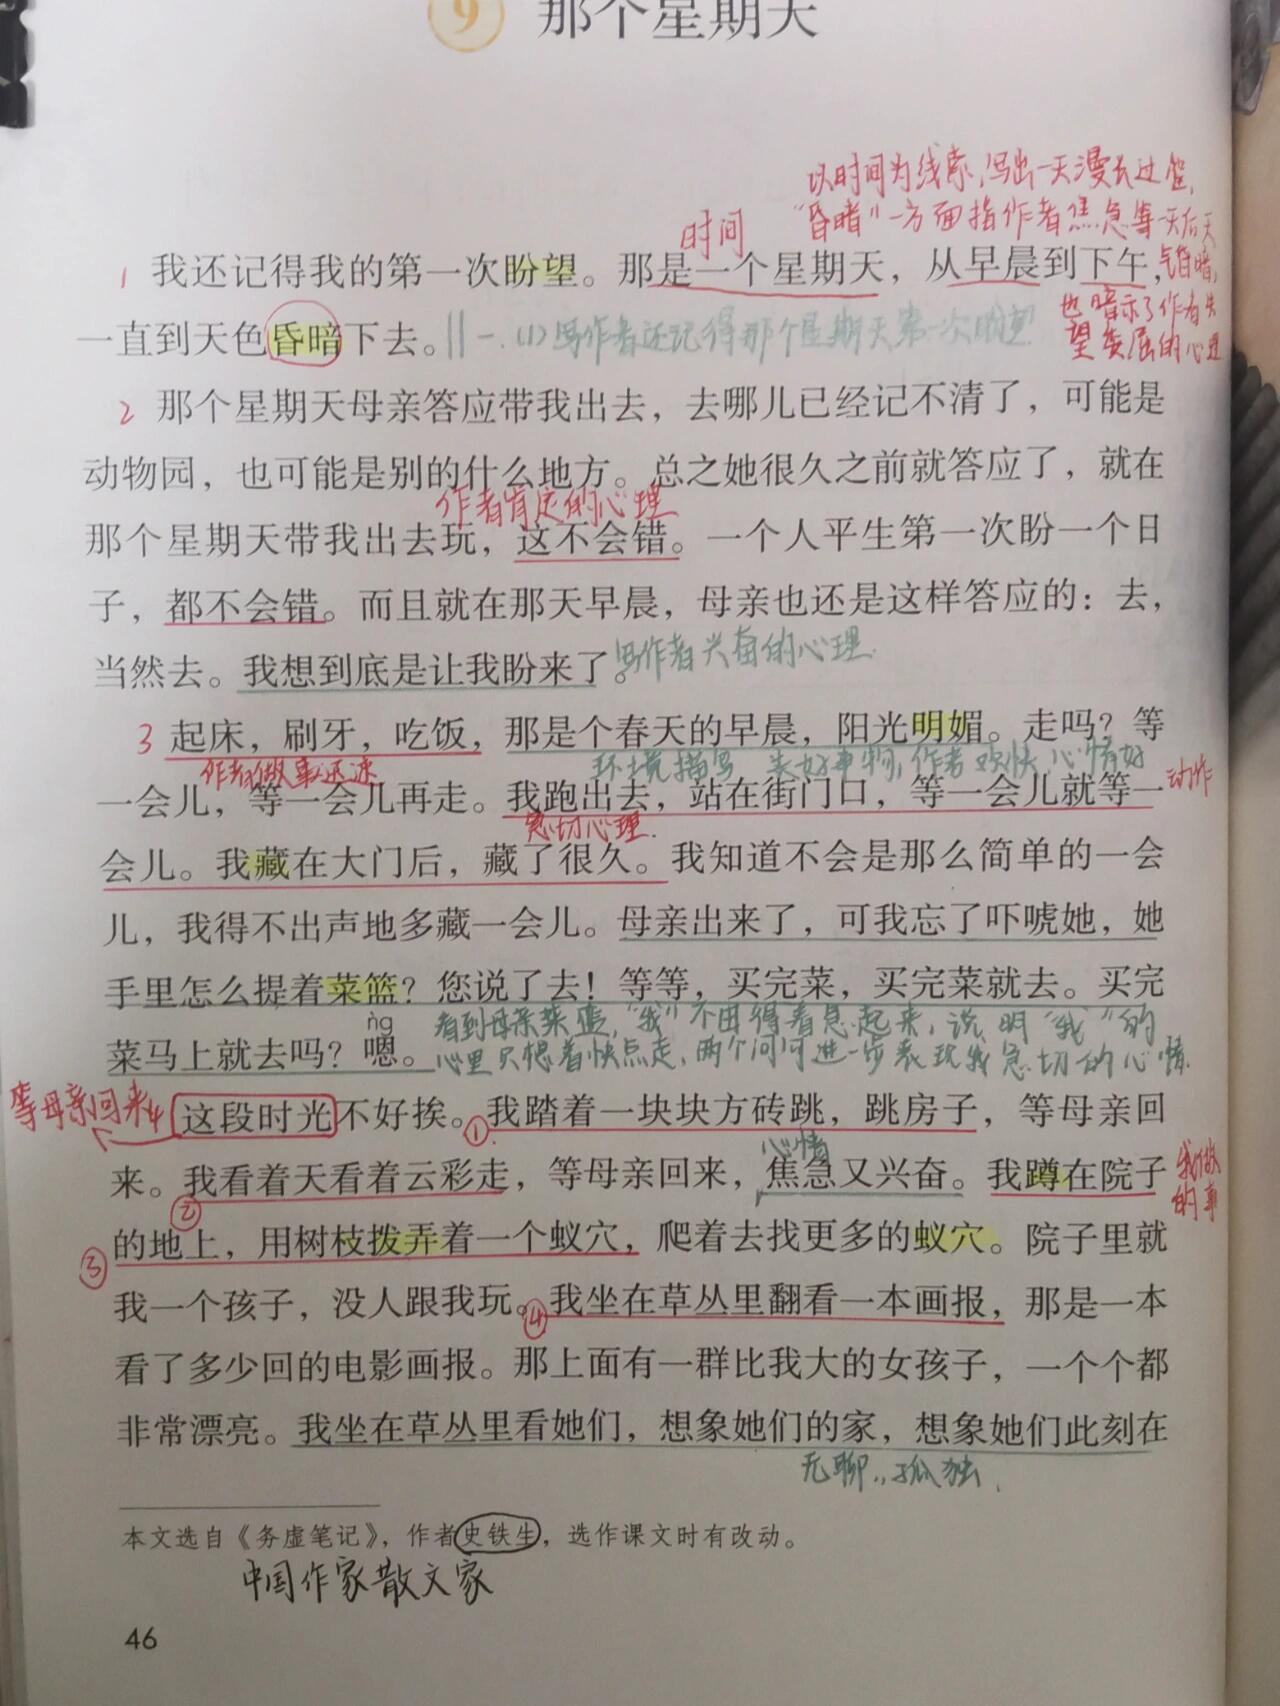 9 那个星期天
以时间为线索,写出一天漫长过程,
时间 "昏暗"一方面指作者焦急等一天后天
1 我还记得我的第一次盼望。那是一个星期天，从早晨到下午，气昏暗,
也暗示了作者失
一直到天色昏暗下去。‖一.(1)写作者还记得那个星期天第一次盼望
望委屈的心理
2 那个星期天母亲答应带我出去，去哪儿已经记不清了，可能是
动物园，也可能是别的什么地方。总之她很久之前就答应了，就在
作者肯定的心理
那个星期天带我出去玩，这不会错。一个人平生第一次盼一个日
子，都不会错。而且就在那天早晨，母亲也还是这样答应的：去，
当然去。我想到底是让我盼来了。写作者兴奋的心理.
3 起床，刷牙，吃饭，那是个春天的早晨，阳光明媚。走吗？等
作者做事迅速 环境描写 美好事物,作者欢快,心情好
一会儿，等一会儿再走。我跑出去，站在街门口，等一会儿就等一 动作
急切心理.
会儿。我藏在大门后，藏了很久。我知道不会是那么简单的一会
儿，我得不出声地多藏一会儿。母亲出来了，可我忘了吓唬她，她
手里怎么提着菜篮？您说了去！等等，买完菜，买完菜就去。买完
ǹg 看到母亲菜篮,"我"不由得着急起来,说明"我"的
菜马上就去吗？嗯。心里只想着快点走,两个问句进一步表现我急切的心情.
等母亲回来
这段时光不好挨。①我踏着一块块方砖跳，跳房子，等母亲回
心情
来。我看着天看着云彩走，等母亲回来，焦急又兴奋。我蹲在院子 我做的事
②
③ 的地上，用树枝拨弄着一个蚁穴，爬着去找更多的蚁穴。院子里就
我一个孩子，没人跟我玩。④我坐在草丛里翻看一本画报，那是一本
看了多少回的电影画报。那上面有一群比我大的女孩子，一个个都
非常漂亮。我坐在草丛里看她们，想象她们的家，想象她们此刻在
无聊,孤独.
本文选自《务虚笔记》，作者史铁生，选作课文时有改动。
中国作家散文家
46